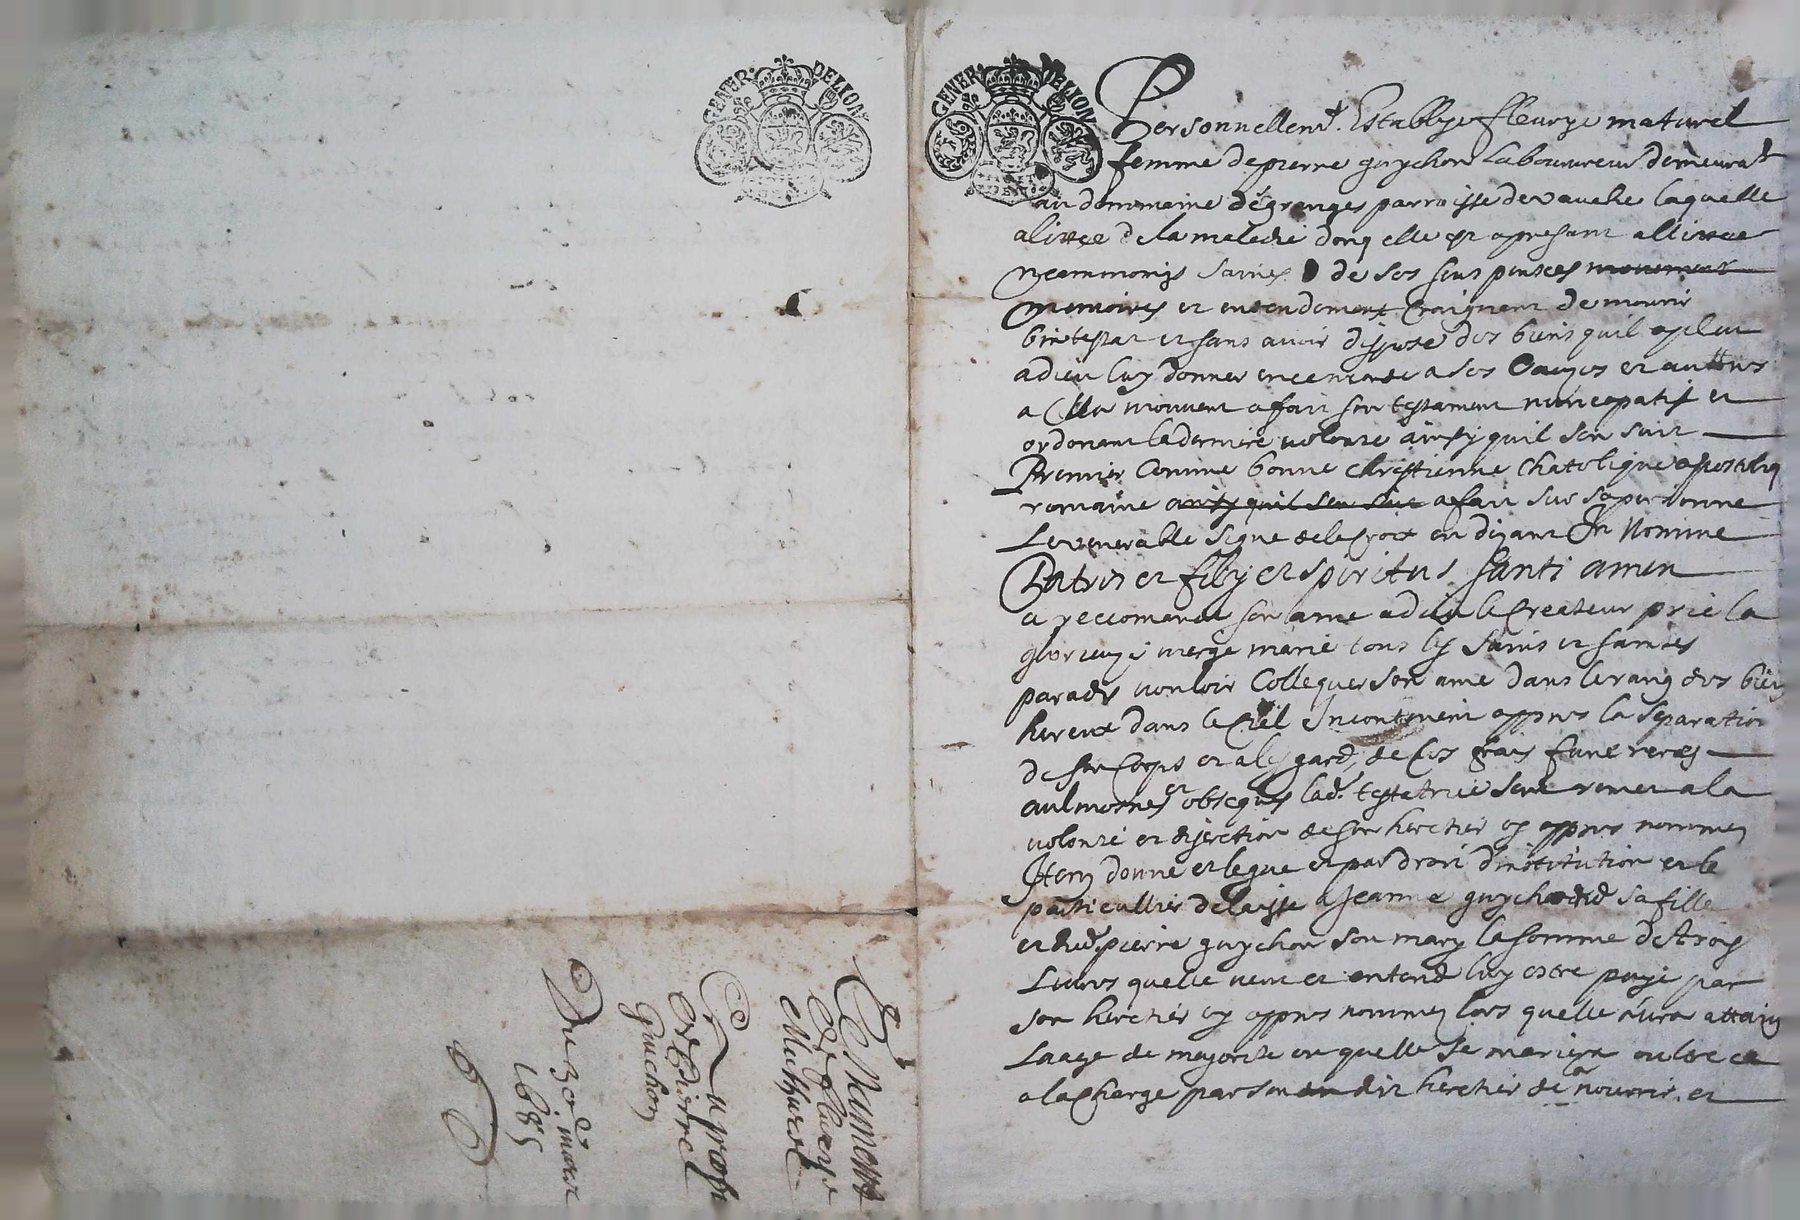 GENER· DE LION
GENER· DE LION
Personnellemt. Establye fleurye maturel
femme de pierre guychon laboureur demeurat
au dommaine dégranges parroisse de vauche laquelle
alittee de la meledie donq elle est apresant allittee
neammoings saines de ses sens pensees mouement
memoires et entendement Craignent de mourir
bintestat et sans avoir dispose des biens quil a pleu
a dieu luy donner en ce monde a ses Causes et auttres
a Elle mouvent a fait son testament nuncepatif et
ordonant le derniere volonte ainsy quil sen suit
Premier Comme bonne chrestienne Chatolique apostoliq
romaine ainsy quil sen suit a fait sur sa personne
Le venerable signe de la Croix en disant In Nomine
Patris et filij et spiritus santi amen
a reccomandé son ame a dieu le Createur prié la
glorieuse vierge marie tous les saints et saintes
paradis vouloir Colloquer son ame dans le rang des bien
hereux dans le Ciel Incontinent appres la separation
de son Corps et a lesgard de ses frais funereres
aulmosnes et obseques lad. testatrice sent remet a la
volonté et disection de son heretier cy appres nommé
Item donne et legue et par droit d'institution et le
particullier delaisse a Jeanne guychond sa fille
et dud. pierre guychon son mary la somme de trois
Livres quelle veut et entend luy estre payé par
son heretier cy appres nommé lors quelle aura attaint
Laage de mejorité ou quelle se mariera oultre ce
a la Charge par son dit heretier de la nourrir et
Testament
de fleurye
Mathurel
Au proffit
de pierre
Guichon
Du 30e mars
1685